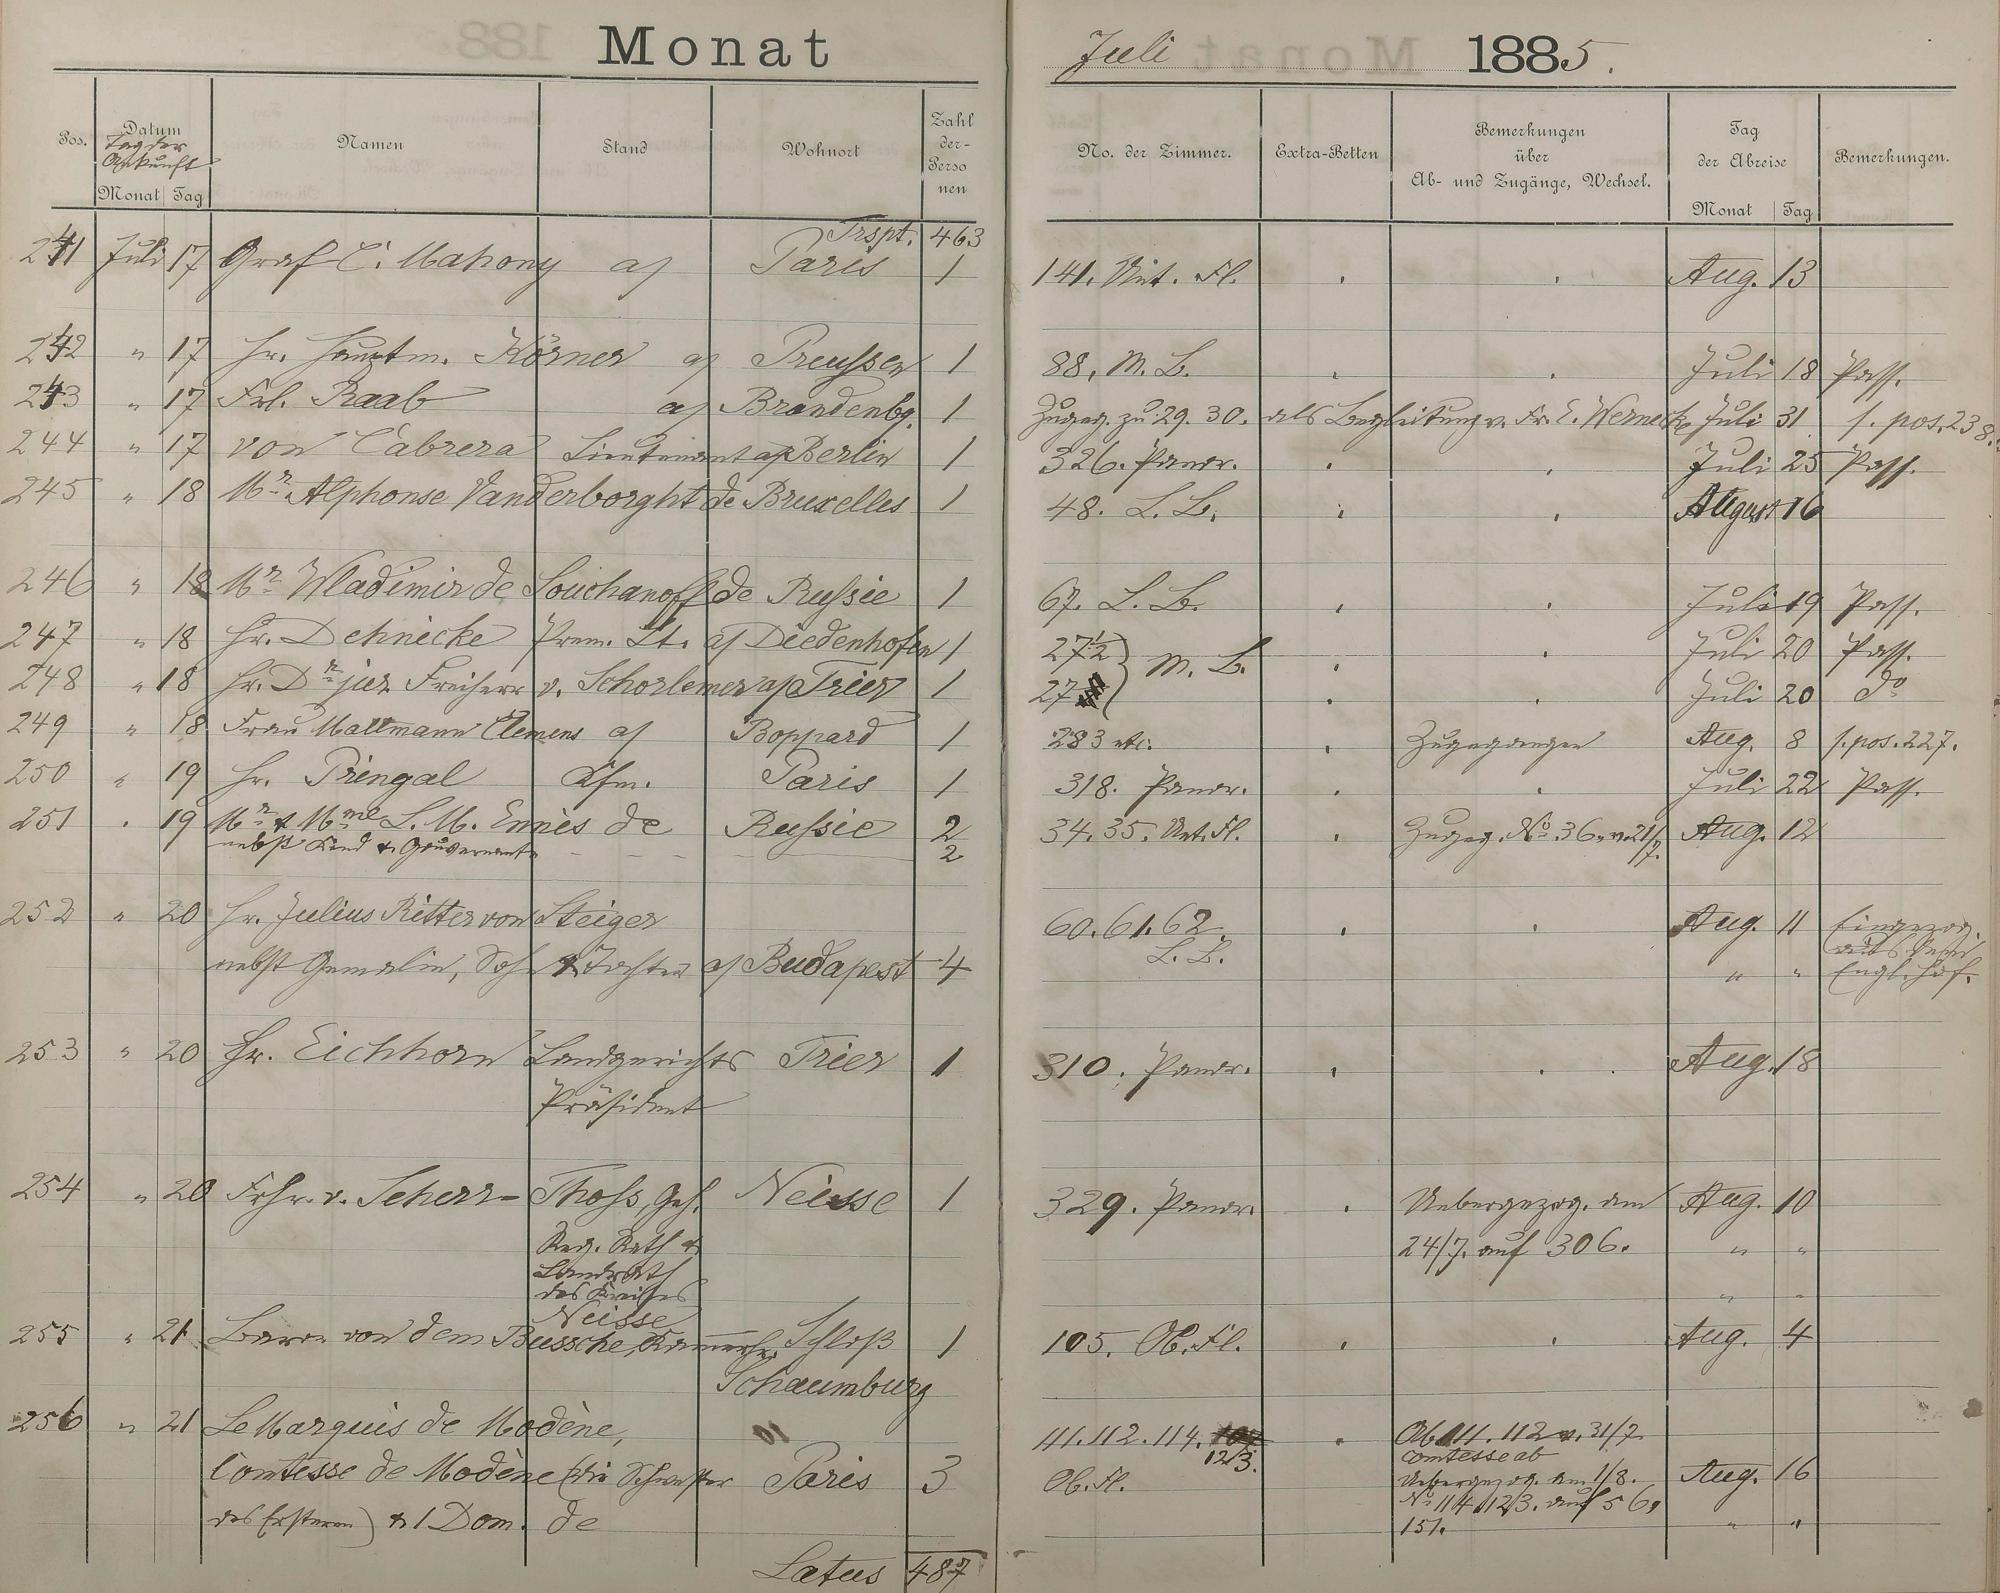 Monat
Juli 1885.
Pos. Datum Namen Stand Wohnort Zahl der Personen
Tag der Ankunft
Monat Tag
No. der Zimmer. Extra-Betten Bemerkungen über Ab- und Zugänge, Wechsel. Tag der Abreise Bemerkungen.
Monat Tag
Trspt. 463
241 Juli 17 Graf C. Mahony a/ Paris 1 141. Unt. Fl. Aug. 13
242 " 17 Hr. Hauptm. Körner a/ Preussen 1 88. M. B. Juli 18 Pass.
243 " 17 Frl. Raab a/ Brandenbg. 1 Zugeg. zu 29. 30. als Begleitung v. Fr. E. Wernecke Juli 31 s. pos. 238.
244 " 17 von Cabrera Lieutenant a/ Berlin 1 326. Panor. Juli 25 Pass.
245 " 18 Mr. Alphonse Vanderborght de Bruxelles 1 48. L. B. August 16
246 " 18 Mr. Wladimir de Souchanoff de Russie 1 67. L. B. Juli 19 Pass.
247 " 18 Hr. Dehnicke Prem. Lt. a/ Diedenhofen 1 27 1/2 M. B. Juli 20 Pass.
248 " 18 Hr. Dr. jur. Freiherr v. Schorlemer a/ Trier 1 27 Juli 20 do
249 " 18 Frau Mallmann Clemens a/ Boppard 1 283 etc. Zugegangen Aug. 8 s. pos. 227.
250 " 19 Hr. Pringal Kfm. Paris 1 318. Panor. Juli 22 Pass.
251 " 19 Mr. & Mme L. M. Ennès de Russie 2 34. 35. Unt. Fl. Zugeg. No. 36. v. 21/7. Aug. 12
nebst Kind & Gouvernante 2
252 " 20 Hr. Julius Ritter von Steiger 60. 61. 62. Aug. 11 Eingezog.
nebst Gemalin, Sohn & Tochter a/ Budapest 4 L. B. " " Engl. Hof.
253 " 20 Hr. Eichhorn Landgerichts Trier 1 310. Panor. Aug. 18
Präsident
254 " 20 Frhr. v. Scherr- Thoss, Geh. Neisse 1 329. Panor. Uebergezog. am Aug. 10
Reg. Rath & 24/7. auf 306. " "
Landrath
des Kreises " "
Neisse
255 " 21 Baron von dem Bussche, Kammerhr. Schloß 1 105. Ob. Fl. Aug. 4
Schaumburg
256 " 21 Le Marquis de Modène, 111. 112. 114. 107 Ab 111. 112 v. 31/7.
123. Comtesse ab
Comtesse de Modène (die Schwester Paris 3 Ob. Fl. Uebergezog. am 1/8. Aug. 16
No. 114. 123. auf 56,
des Ersteren) & 1 Dom. de 151. " "
Latus 487